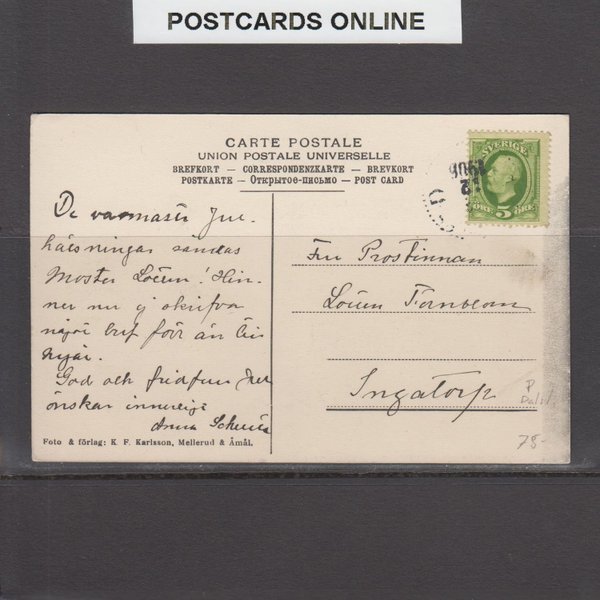 POSTCARDS ONLINE
CARTE POSTALE
UNION POSTALE UNIVERSELLE
BREFKORT — CORRESPONDENZKARTE — BREVKORT
POSTKARTE — Открытое-письмо — POST CARD
SVERIGE
ÖRE 5 ÖRE
12
1906
De varmaste Jul-
hälsningar sändas
Moster Loéun! Hin-
ner nu ej skrifva
något bref förr än till
nyår.
God och fridfull Jul
önskar innerligt
Anna
Fru Prostinnan
Loéun Törnblom
Ingatorp
P
78-
Foto & förlag: K. F. Karlsson, Mellerud & Åmål.